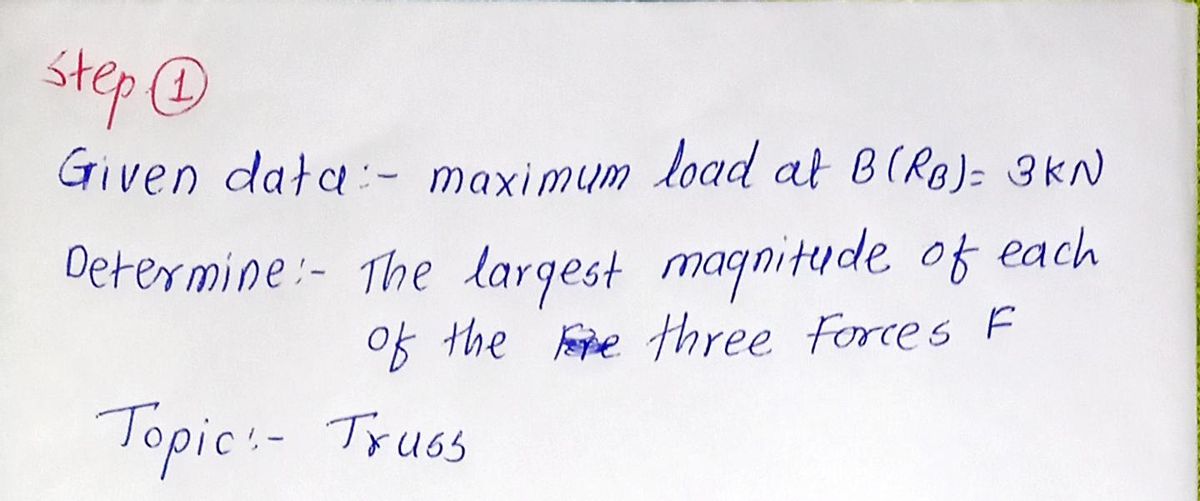 Step ①
Given data:- maximum load at B(RB)= 3KN
Determine:- The largest magnitude of each
of the three forces F
Topic:- Truss